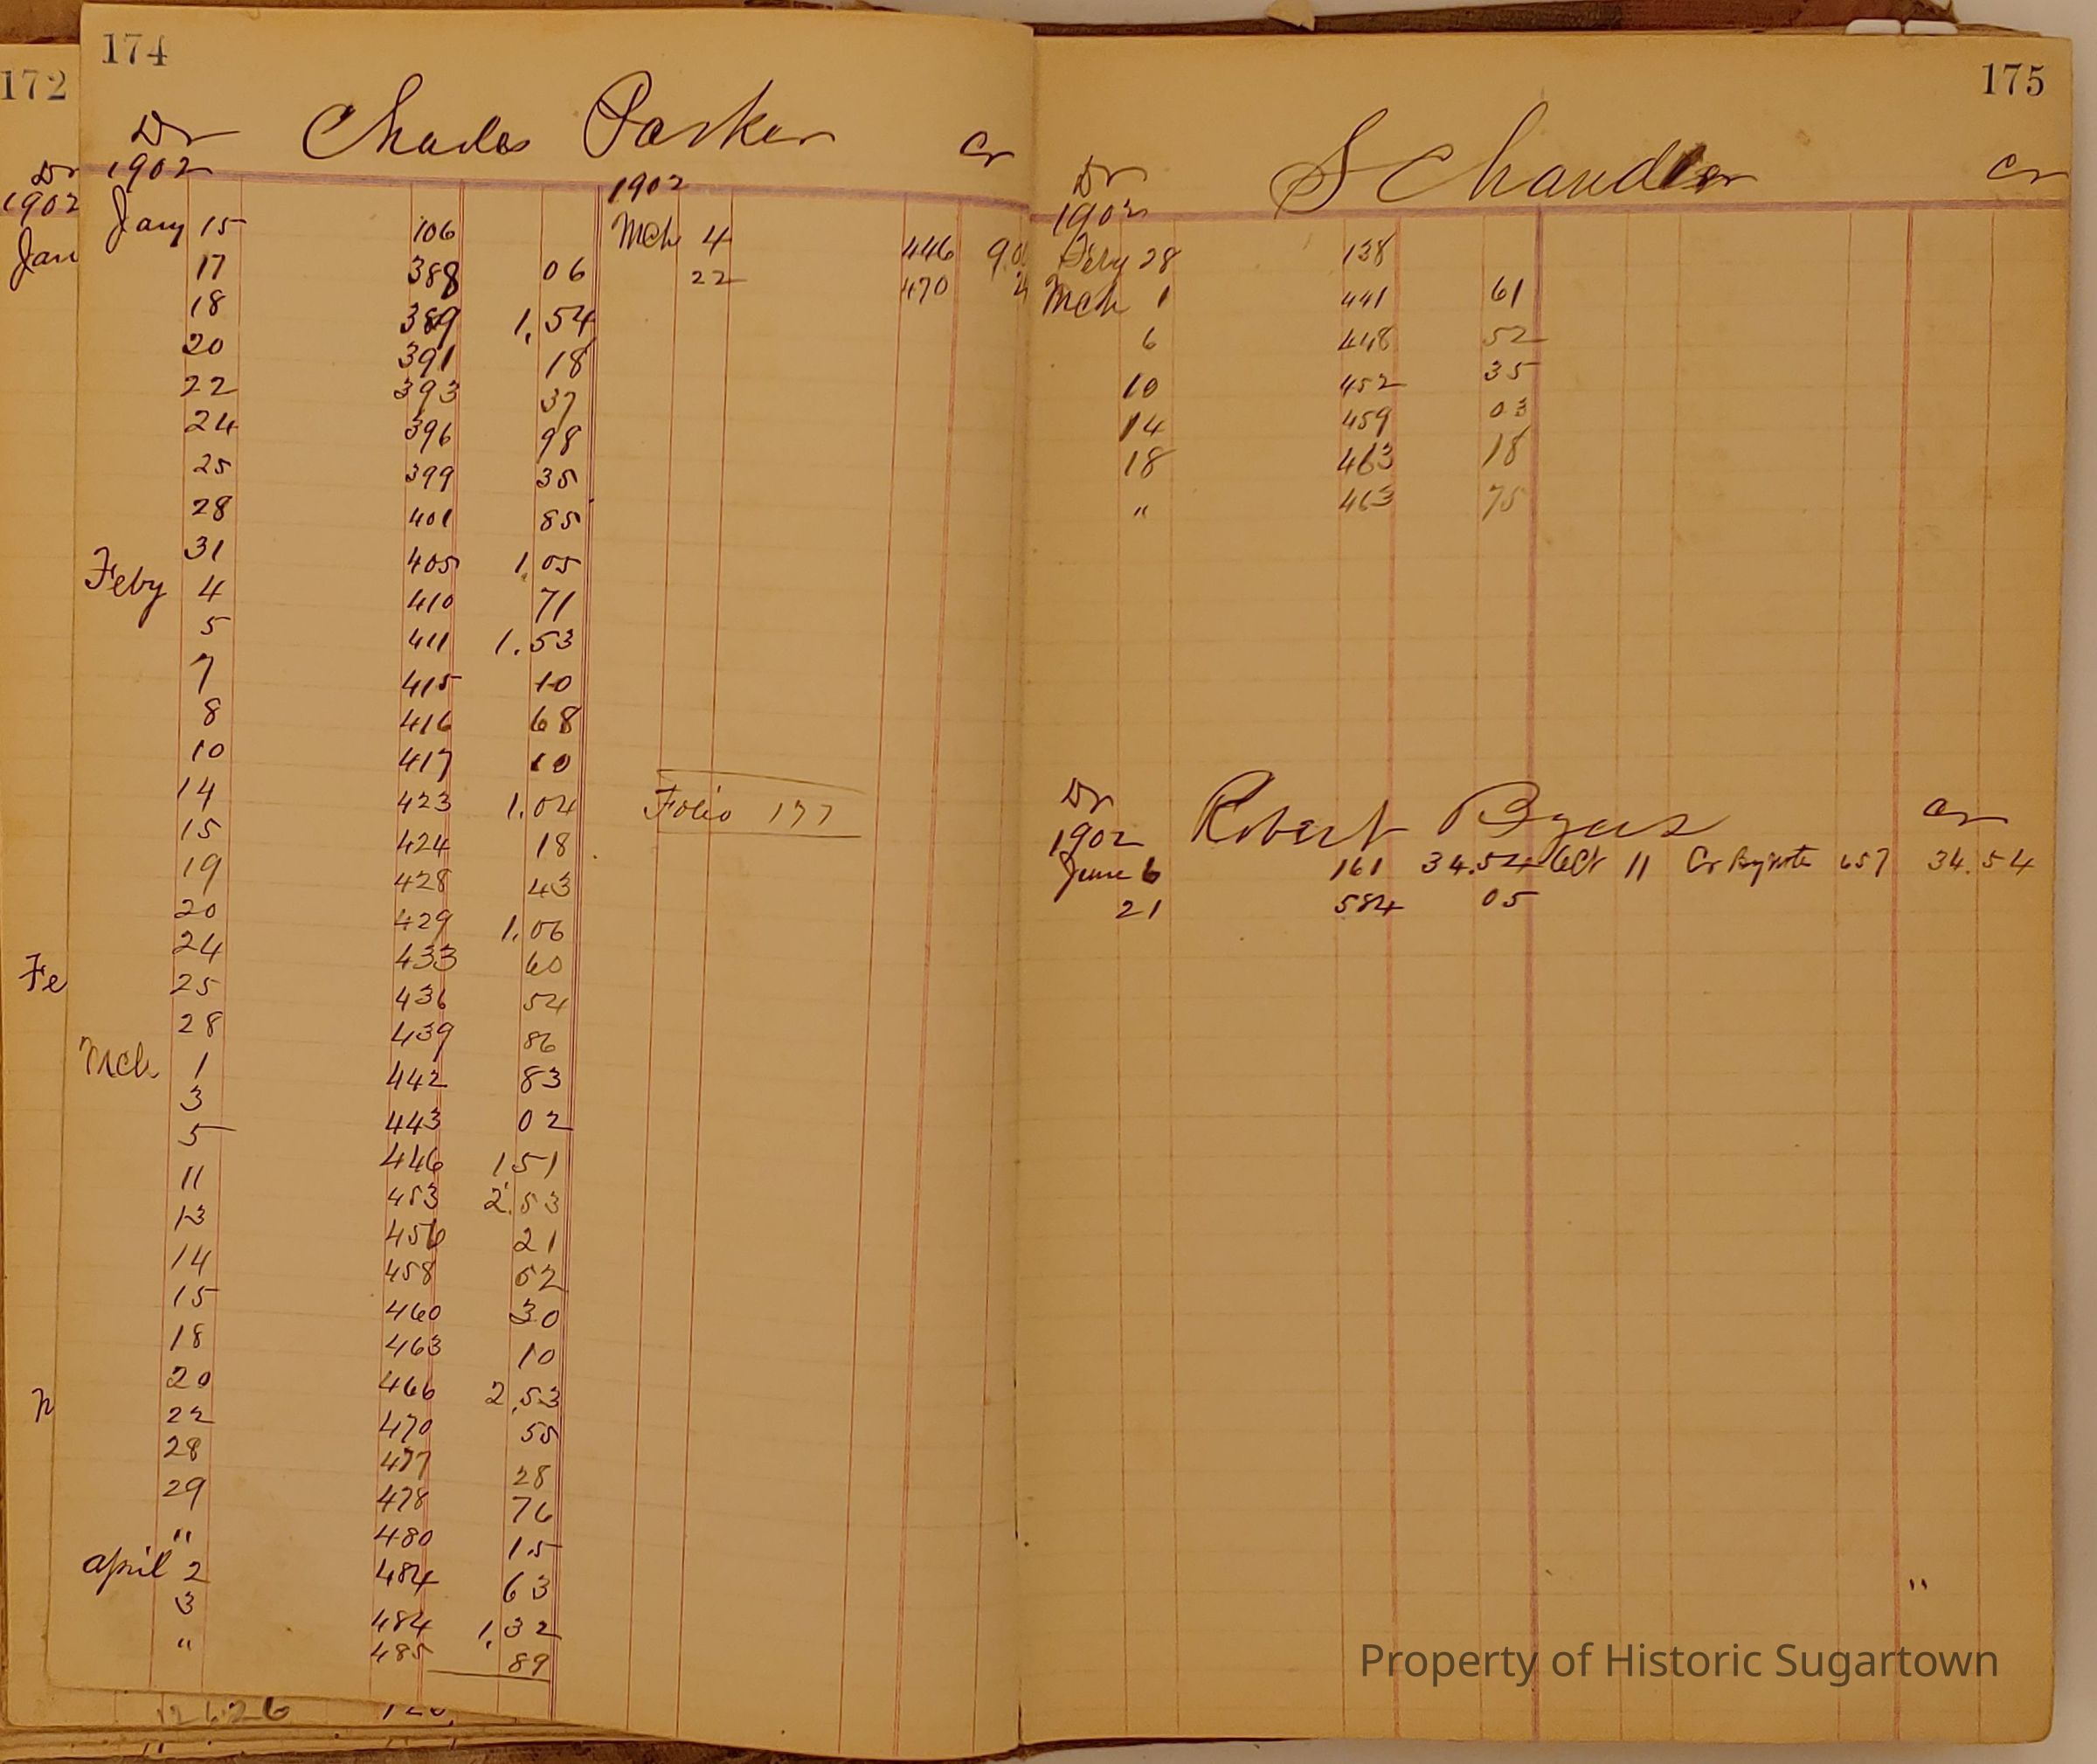 172
Dr
1902
Jan
Fe
174
Dr Charles Parker Cr
1902 1902
Jany 15 106 Mch 4 446
17 388 06 22 470
18 389 1.54
20 391 18
22 393 37
24 396 98
25 399 35
28 401 85
31 405 1.05
Feby 4 410 71
5 411 1.53
7 415 10
8 416 68
10 417 10
14 423 1.04 Folio 177
15 424 18
19 428 43
20 429 1.06
24 433 60
25 436 54
28 439 86
Mch 1 442 83
3 443 02
5 446 1 51
11 453 2.53
13 456 21
14 458 52
15 460 30
18 463 10
20 466 2.53
22 470 55
28 477 28
29 478 76
" 480 15
April 2 484 63
3 484 1.32
" 485 89
175
Dr S Chandler Cr
1902
Feby 28 138
Mch 1 441 61
6 448 52
10 452 35
14 459 03
18 463 18
" 463 75
Dr Robert Byers Cr
1902
June 6 161 34.54 Oct 11 Cr By note 657 34.54
21 584 05
"
Property of Historic Sugartown